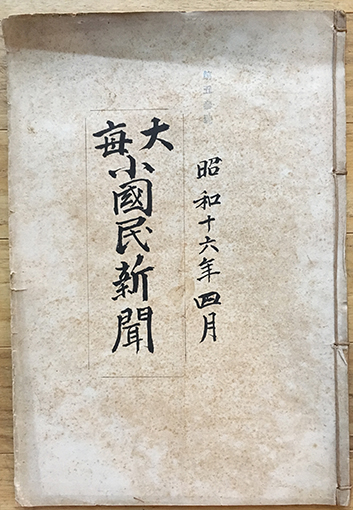 昭和十六年四月
大毎小國民新聞